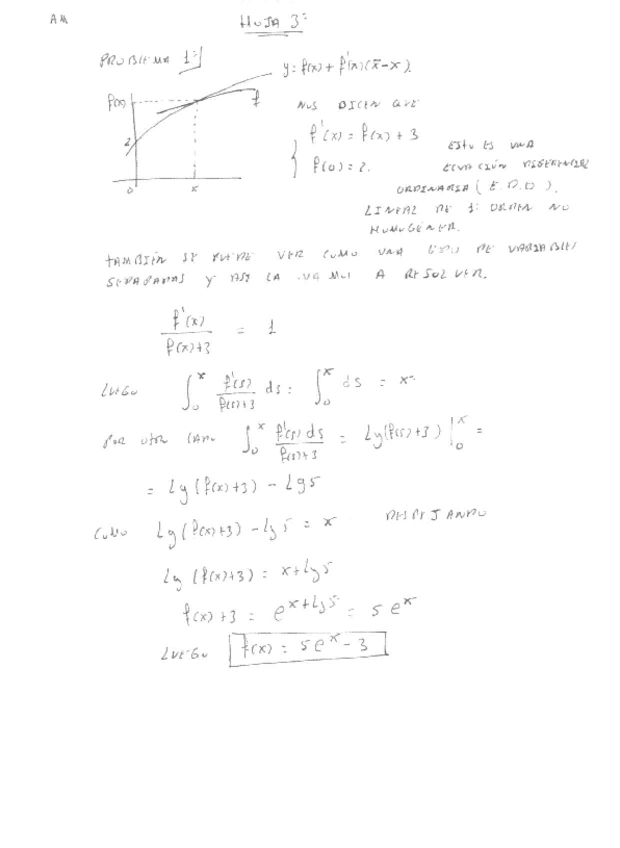 AM
HOJA 3:
PROBLEMA 1:
y = f(x) + f'(x)(x̄-x).
f(x)
f
2
0
x
NOS DICEN QUE
f'(x) = f(x) + 3
f(0) = 2.
ESTO ES UNA
ECUACIÓN DIFERENCIAL
ORDINARIA (E.D.O).
LINEAL DE 1: ORDEN NO
HOMOGÉNEA.
TAMBIÉN SE PUEDE VER COMO UNA EDO DE VARIABLES
SEPARADAS Y ASÍ LA VAMOS A RESOLVER.
f'(x) / f(x)+3 = 1
LUEGO ∫₀ˣ f'(s) / f(s)+3 ds = ∫₀ˣ ds = x
POR OTRO LADO ∫₀ˣ f'(s) ds / f(s)+3 = Lg(f(s)+3) |₀ˣ =
= Lg(f(x)+3) - Lg5
COMO Lg(f(x)+3) - Lg5 = x DESPEJANDO
Lg(f(x)+3) = x+Lg5
f(x)+3 = e^(x+Lg5) = 5e^x
LUEGO f(x) = 5e^x - 3